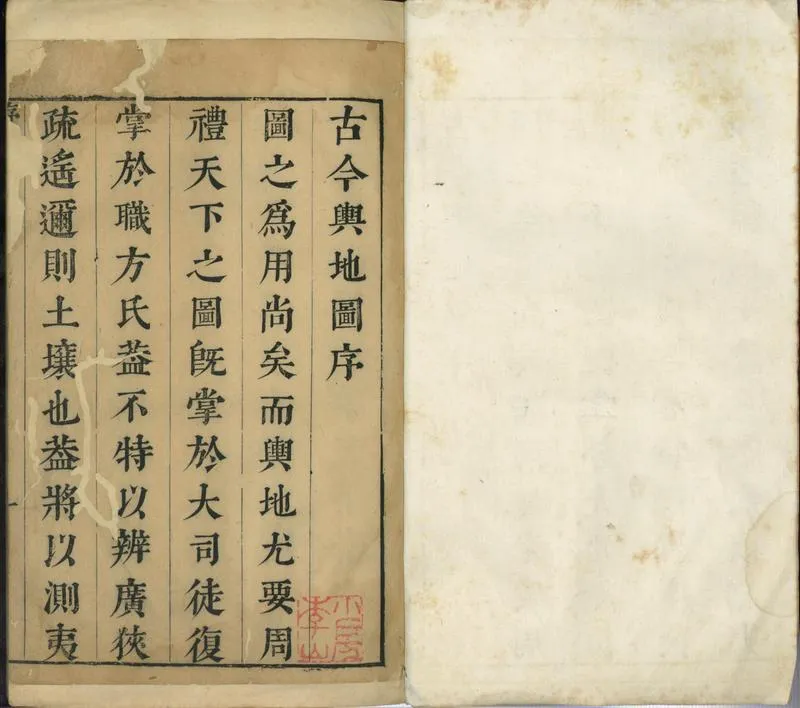 古今輿地圖序
圖之爲用尚矣而輿地尤要周
禮天下之圖旣掌於大司徒復
掌於職方氏葢不特以辨廣狹
疏遙邇則土壤也葢將以測夷
序
一